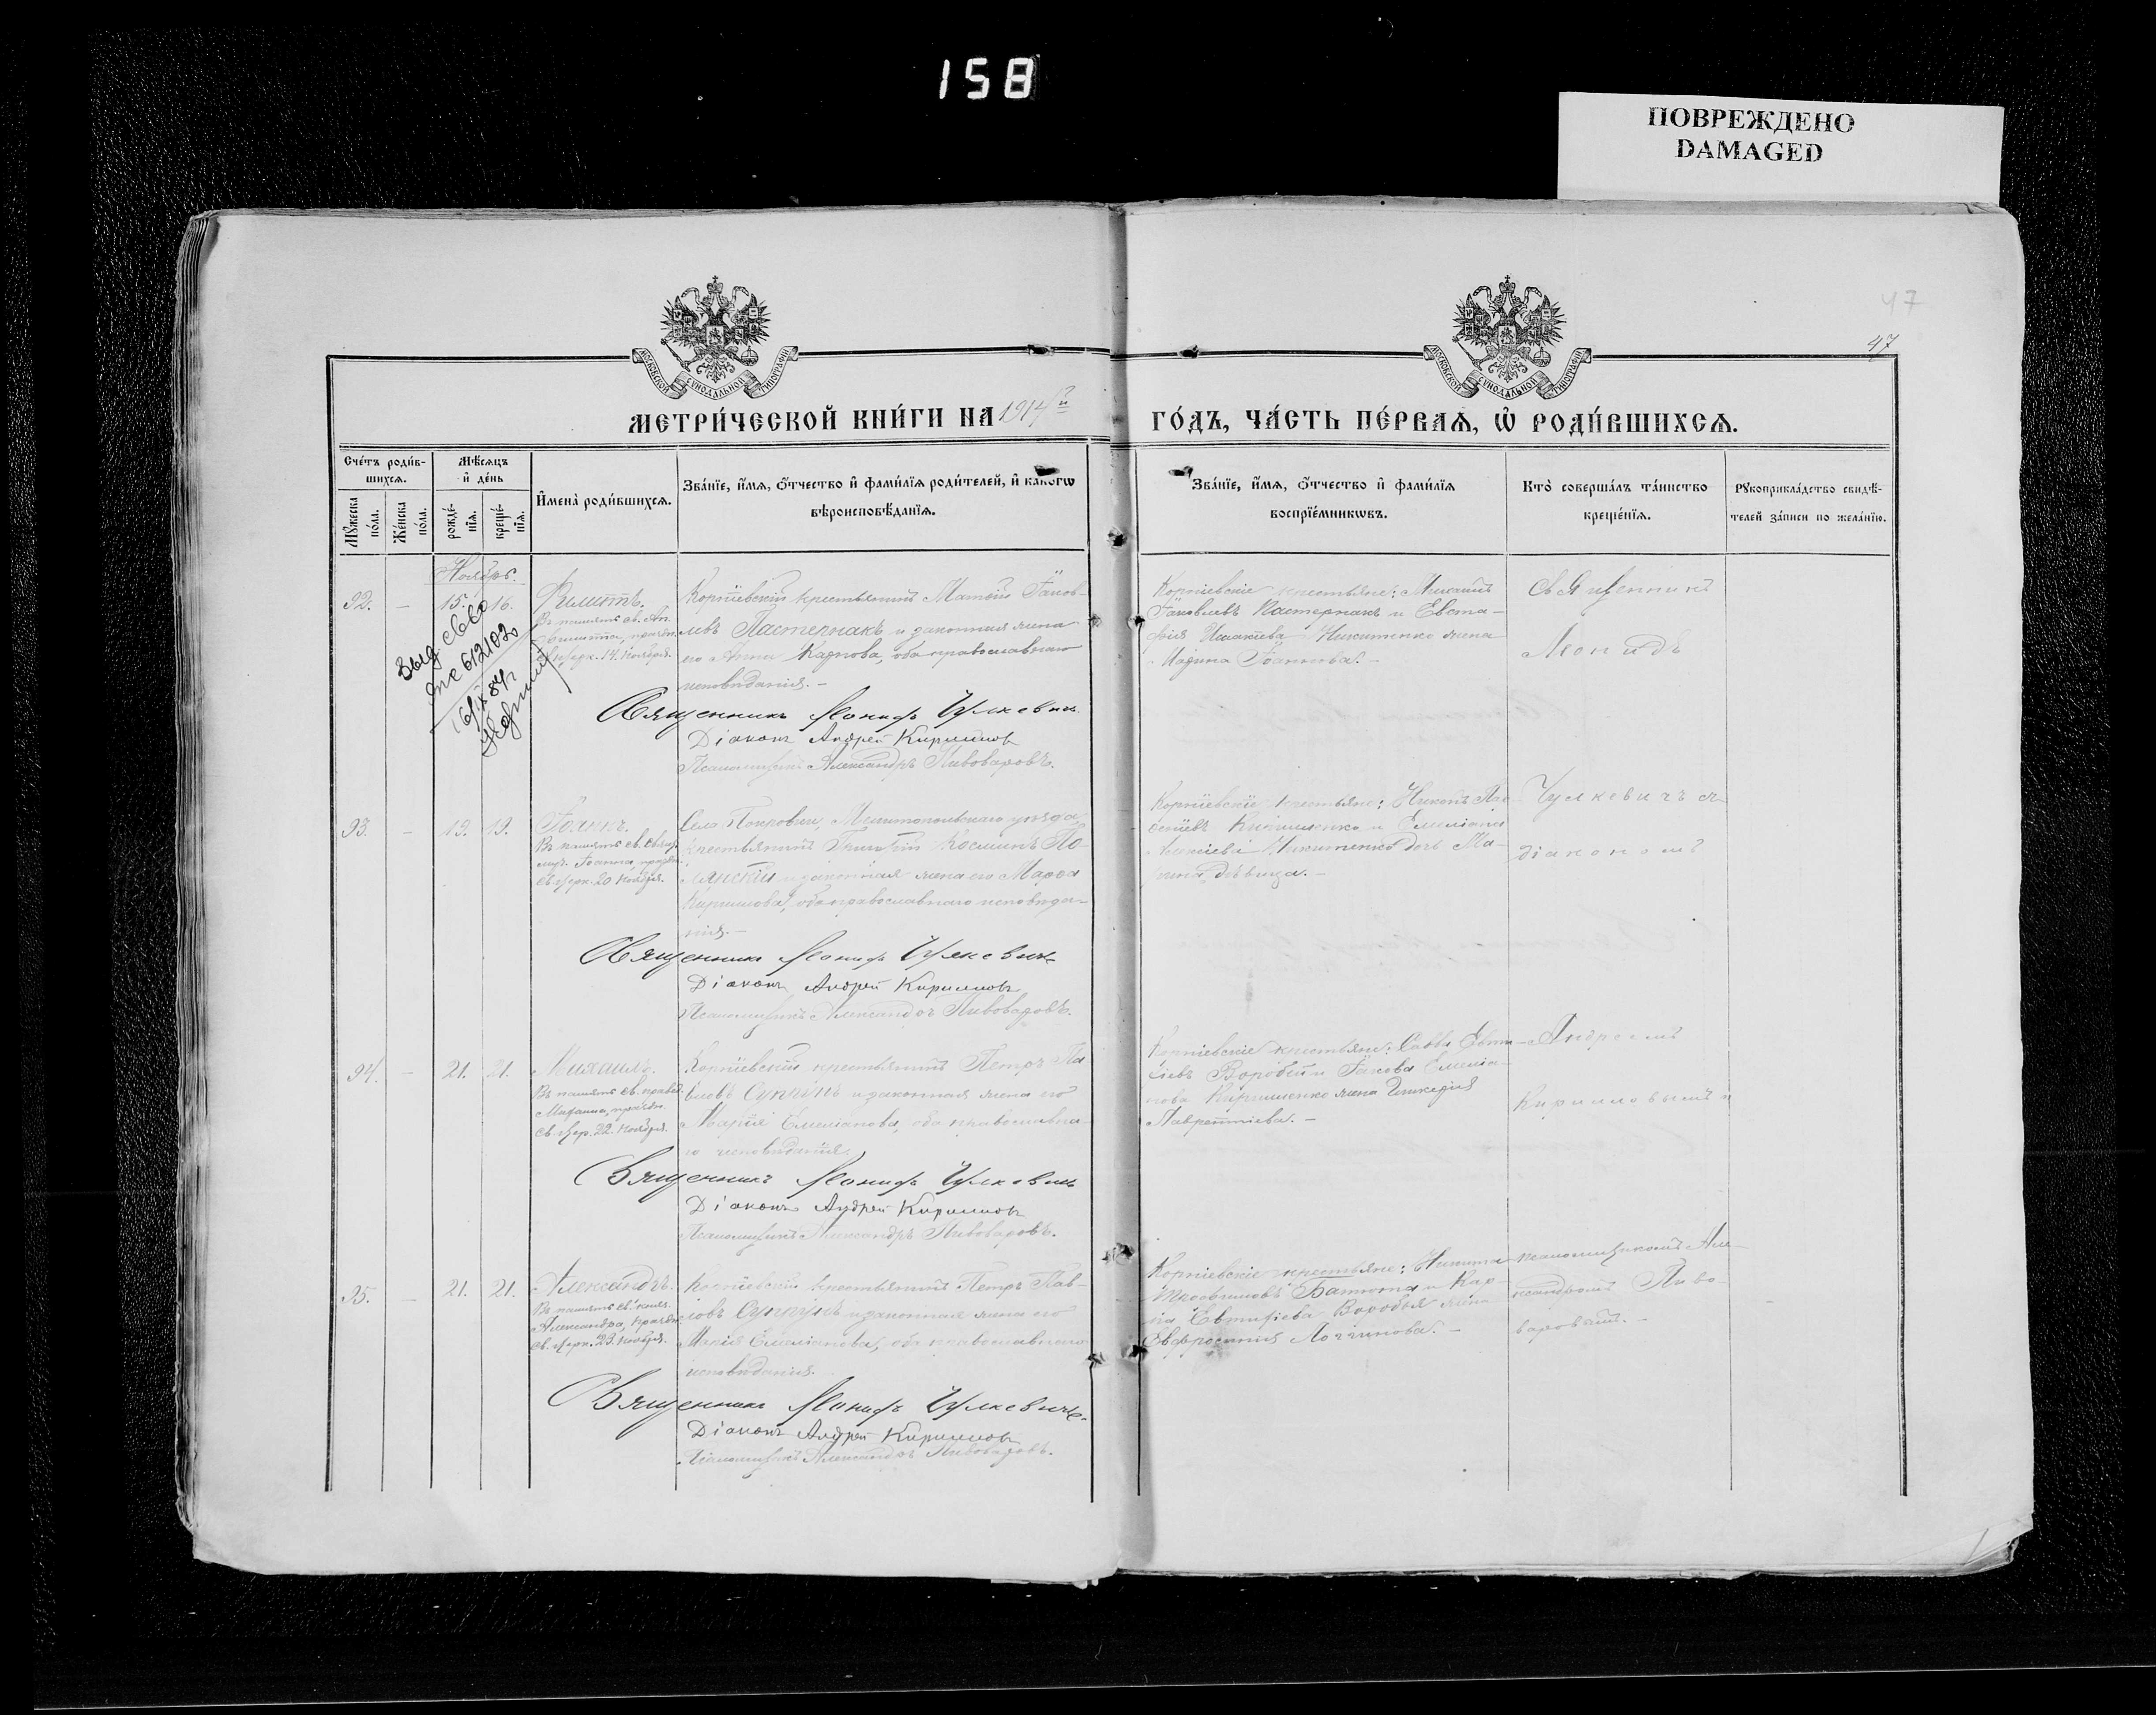 158
ПОВРЕЖДЕНО
DAMAGED
47
47
МОСКОВСКОЙ СѴНОДАЛЬНОЙ ТИПОГРАФІИ
МОСКОВСКОЙ СѴНОДАЛЬНОЙ ТИПОГРАФІИ
МЕТРИ́ЧЕСКОЙ КНИ́ГИ НА 1914й
ГО́ДЪ, ЧА́СТЬ ПЕ́РВАѦ, Ѡ҆ РОДИ́ВШИХСѦ.
Сче́тъ роди́в-
шихсѧ.
Мꙋ́жеска по́ла.
Же́нска по́ла.
Мѣ́сѧцъ
и҆ де́нь
рожде́-
нїѧ.
креще́-
нїѧ.
И҆мена̀ роди́вшихсѧ.
Зва́нїе, и҆́мѧ, ѻ҆́тчество и҆ фами́лїѧ роди́телей, и҆ како́гѡ
вѣроисповѣ́данїѧ.
Зва́нїе, и҆́мѧ, ѻ҆́тчество и҆ фами́лїѧ
воспрїе́мникѡвъ.
Кто̀ соверша́лъ та́инство
креще́нїѧ.
Рꙋкоприкла́дство свидѣ́-
телей за́писи по жела́нїю.
Ноябрь.
92. — 15. 16. Филиппъ.
Въ память св. Ап.
Филиппа, празdн.
св. церк. 14. Ноября.
Корніевскій крестьянинъ Матѳій Іаков-
левъ Пастернакъ и законная жена
его Анна Карпова, оба православнаго
исповѣданія. —
Священникъ Леонидъ Чулкевичъ
Діаконъ Андрей Кирилловъ
Псаломщикъ Александръ Пивоваровъ.
Корніевскіе крестьяне: Михаилъ
Іаковлевъ Пастернакъ и Евста-
фія Никитенко жена
Марина Іоаннова. —
Священникъ
Леонидъ
93. — 19. 19. Іоаннъ.
Въ память св. свящ.
муч. Іоанна, празdн.
св. церк. 20 Ноября.
Село Покровки, Мелитопольскаго уѣзда,
крестьянинъ Косминъ По-
лянскій и законная жена его Марѳа
Кириллова, оба православнаго исповѣда-
нія. —
Священникъ Леонидъ Чулкевичъ
Діаконъ Андрей Кирилловъ
Псаломщикъ Александръ Пивоваровъ.
Корніевскіе крестьяне:
Кириленко и Емеліана
Алексіева Никитенко дочь Ма-
рина, дѣвица. —
Чулкевичъ съ
діакономъ
94. — 21. 21. Михаилъ.
Въ память св. правед.
Михаила, празdн.
св. цер. 22. Ноября.
Корніевскій крестьянинъ Петръ Па-
вловъ Супрунъ и законная жена его
Марія Емеліанова, оба православна-
го исповѣданія.
Священникъ Леонидъ Чулкевичъ
Діаконъ Андрей Кирилловъ
Псаломщикъ Александръ Пивоваровъ.
Корніевскіе крестьяне: Савва Евти-
хіевъ Воробей и Іакова Емеліа-
нова Кириленко жена Гликерія
Лаврентіева. —
Андреемъ
Кирилловымъ и
95. — 21. 21. Александръ.
Въ память св. княз.
Александра, празdн.
св. церк. 23. Ноября.
Корніевскій крестьянинъ Петръ Пав-
ловъ Супрунъ и законная жена его
Марія Емеліанова, оба православнаго
исповѣданія.
Священникъ Леонидъ Чулкевичъ
Діаконъ Андрей Кирилловъ
Псаломщикъ Александръ Пивоваровъ.
Корніевскіе крестьяне: Никита
Трофимовъ и Кар-
па Евтихіева Воробья жена
Евфросинія Логгинова. —
псаломщикомъ Але-
ксандромъ Пиво-
варовымъ. —